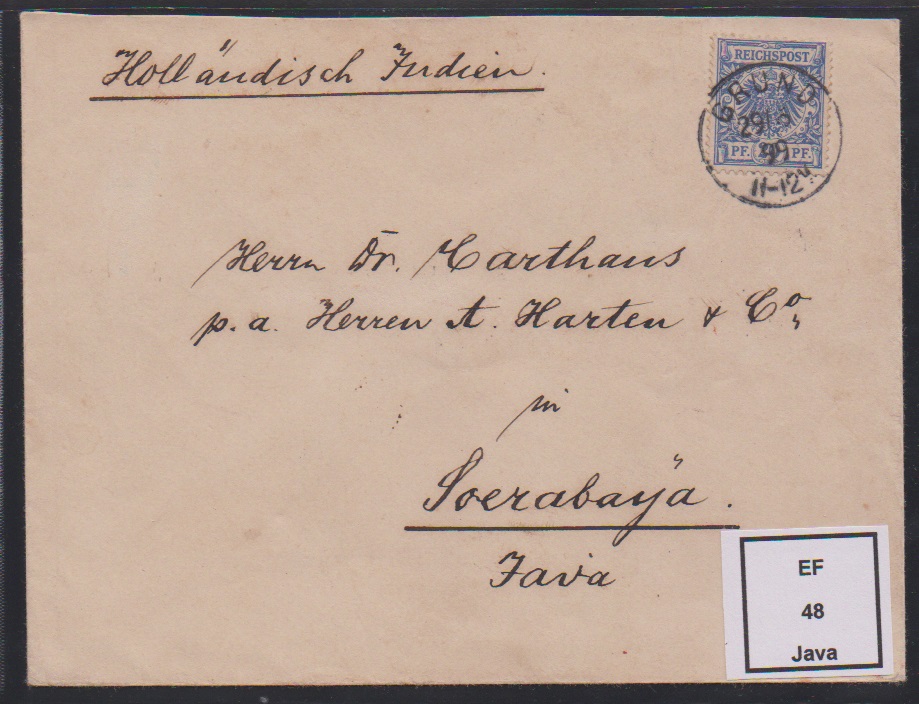 Holländisch Indien.
REICHSPOST
PF. PF.
GRUND
99
11-12V.
Herrn Dr. Carthaus
p. a. Herren A. Harten & Co.
in
Soerabaÿa.
Java
EF
48
Java